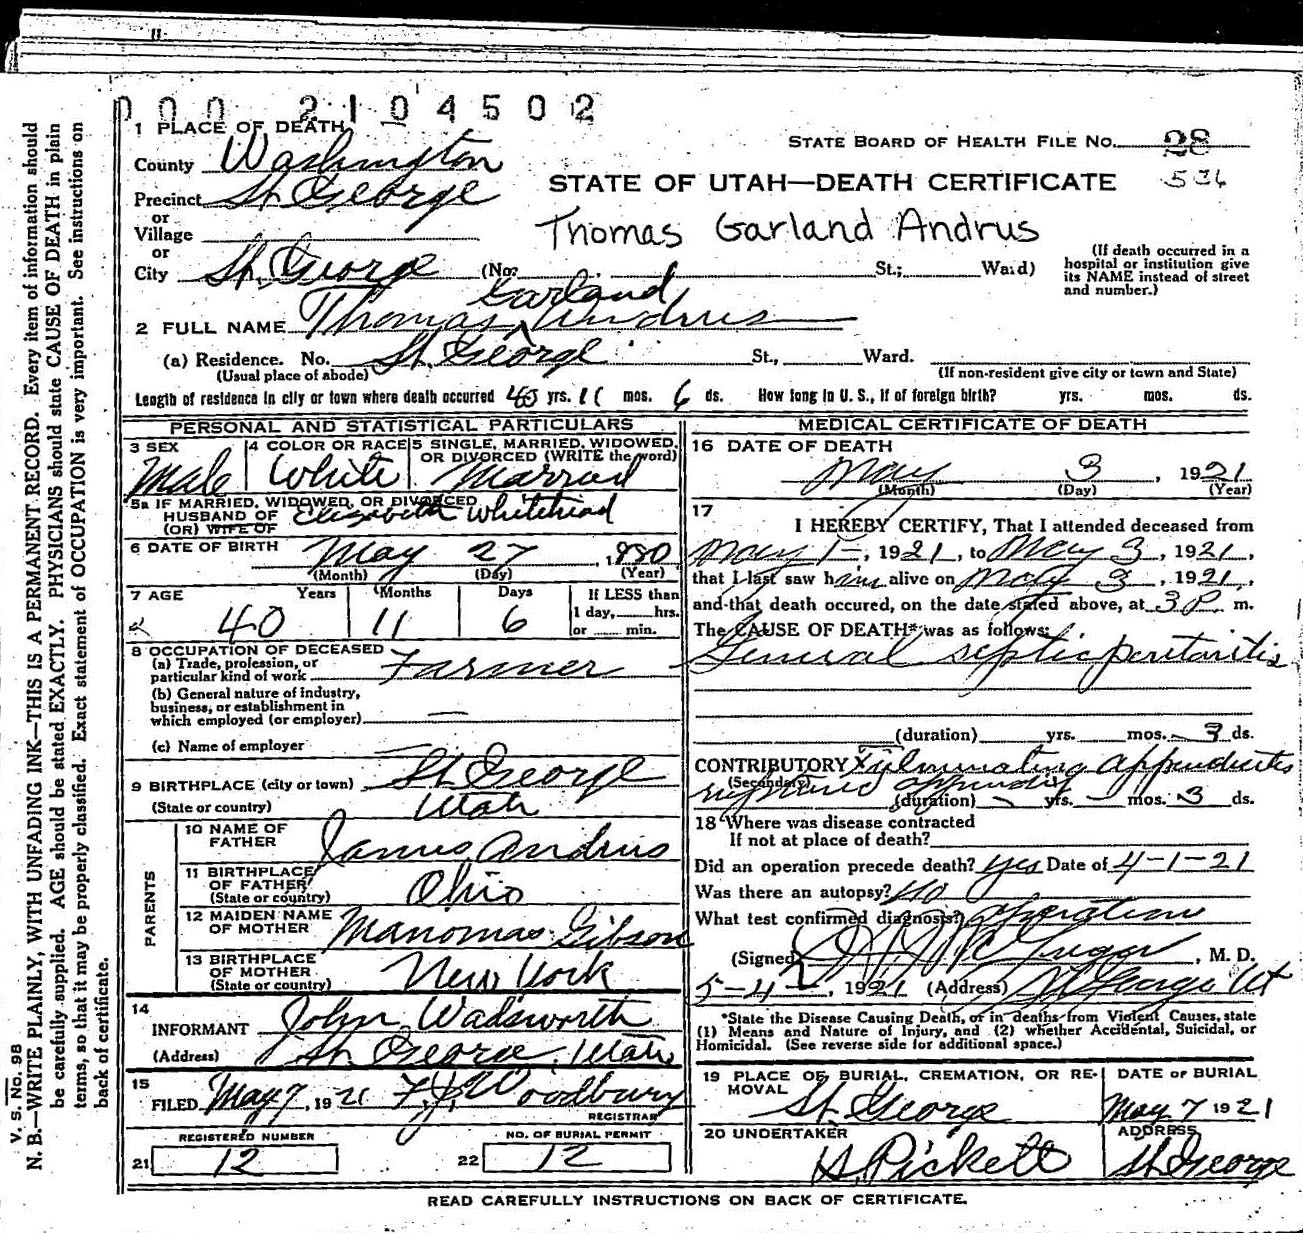 000 2104502
1 PLACE OF DEATH
STATE BOARD OF HEALTH FILE NO. 28
County Washington
536
STATE OF UTAH—DEATH CERTIFICATE
Precinct St. George
or
Village
Thomas Garland Andrus
or
City St. George (No. St.; Ward)
(If death occurred in a hospital or institution give its NAME instead of street and number.)
Garland
2 FULL NAME Thomas ^ Andrus
(a) Residence. No. St. George St., Ward.
(Usual place of abode) (If non-resident give city or town and State)
Length of residence in city or town where death occurred 40 yrs. 11 mos. 6 ds. How long in U. S., if of foreign birth? yrs. mos. ds.
PERSONAL AND STATISTICAL PARTICULARS
3 SEX
Male
4 COLOR OR RACE
White
5 SINGLE, MARRIED, WIDOWED, OR DIVORCED (WRITE the word)
Married
5a IF MARRIED, WIDOWED, OR DIVORCED
HUSBAND OF Elizabeth Whitehead
(OR) WIFE OF
6 DATE OF BIRTH May 27, 1880
(Month) (Day) (Year)
7 AGE Years Months Days If LESS than
40 11 6 1 day, hrs.
or min.
8 OCCUPATION OF DECEASED
(a) Trade, profession, or
particular kind of work Farmer
(b) General nature of industry,
business, or establishment in
which employed (or employer) —
(c) Name of employer
9 BIRTHPLACE (city or town) St. George
(State or country) Utah
PARENTS
10 NAME OF FATHER James Andrus
11 BIRTHPLACE OF FATHER (State or country) Ohio
12 MAIDEN NAME OF MOTHER Manomas Gibson
13 BIRTHPLACE OF MOTHER (State or country) New York
14
INFORMANT John Wadsworth
(Address) St. George, Utah
15
FILED May 7, 1921 F. J. Woodbury
REGISTRAR
REGISTERED NUMBER
21 12
NO. OF BURIAL PERMIT
22 12
MEDICAL CERTIFICATE OF DEATH
16 DATE OF DEATH
May 3, 1921
(Month) (Day) (Year)
17
I HEREBY CERTIFY, That I attended deceased from
May 1-, 1921, to May 3, 1921,
that I last saw him alive on May 3, 1921,
and that death occured, on the date stated above, at 3 P. m.
The CAUSE OF DEATH* was as follows:
General septic peritonitis
(duration) yrs. mos. 3 ds.
CONTRIBUTORY Fulminating appendicitis
(Secondary)
ruptured appendix
(duration) — yrs. — mos. 3 ds.
18 Where was disease contracted
If not at place of death?
Did an operation precede death? yes Date of 4-1-21
Was there an autopsy? no
What test confirmed diagnosis? Operation
(Signed) McGregor, M. D.
5-4-, 1921 (Address) St George Ut
*State the Disease Causing Death, or in deaths from Violent Causes, state
(1) Means and Nature of Injury, and (2) whether Accidental, Suicidal, or
Homicidal. (See reverse side for additional space.)
19 PLACE OF BURIAL, CREMATION, OR REMOVAL
St. George
DATE OF BURIAL
May 7 1921
20 UNDERTAKER
H. Pickett
ADDRESS
St. George
READ CAREFULLY INSTRUCTIONS ON BACK OF CERTIFICATE.
V. S. No. 98
N. B.—WRITE PLAINLY, WITH UNFADING INK—THIS IS A PERMANENT RECORD. Every item of information should
be carefully supplied. AGE should be stated EXACTLY. PHYSICIANS should state CAUSE OF DEATH in plain
terms, so that it may be properly classified. Exact statement of OCCUPATION is very important. See instructions on
back of certificate.